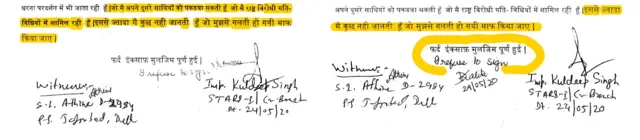 धरना परदर्शन में भी जाता रही हूँ जो मै अपने दुसरे साथियों को पकडवा सकती हूँ जो मै राष्ट्र विरोधी गति-
विधियों में शामिल रही हूँ। इससे ज्यादा मै कुछ नही जानती हूँ जो मुझसे गलती हो गयी माफ किया
जाए।
फर्द इंकसाफ मुलजिम पूर्ण हुई।
I refuse to sign
Witness
S.I. Athira D-2984
Insp. Kuldeep Singh
STARS-I/Cr. Branch
Dt. 24/05/20
अपने दुसरे साथियों को पकडवा सकती हूँ जो मै राष्ट्र विरोधी गति-विधियों में शामिल रही हूँ। इससे ज्यादा
मै कुछ नही जानती हूँ जो मुझसे गलती हो गयी माफ किया जाए।
फर्द इंकसाफ मुलजिम पूर्ण हुई।
I refuse to sign
Witness
S.I. Athira D-2984
Insp. Kuldeep Singh
STARS-I/Cr. Branch
Dt. 24/05/20